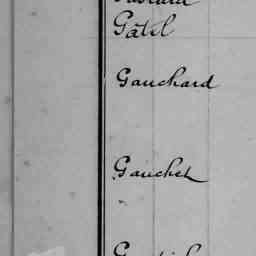 Gatel
Gauchard
Gauchet